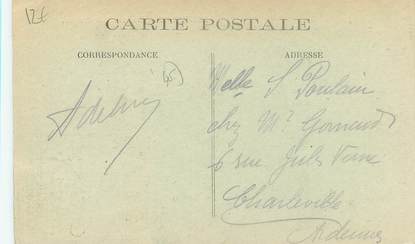 12€
CARTE POSTALE
CORRESPONDANCE
ADRESSE
45
Melle S Poulain
chez Mr Gornaud
6 rue Jules Verne
Charleville
Ardennes